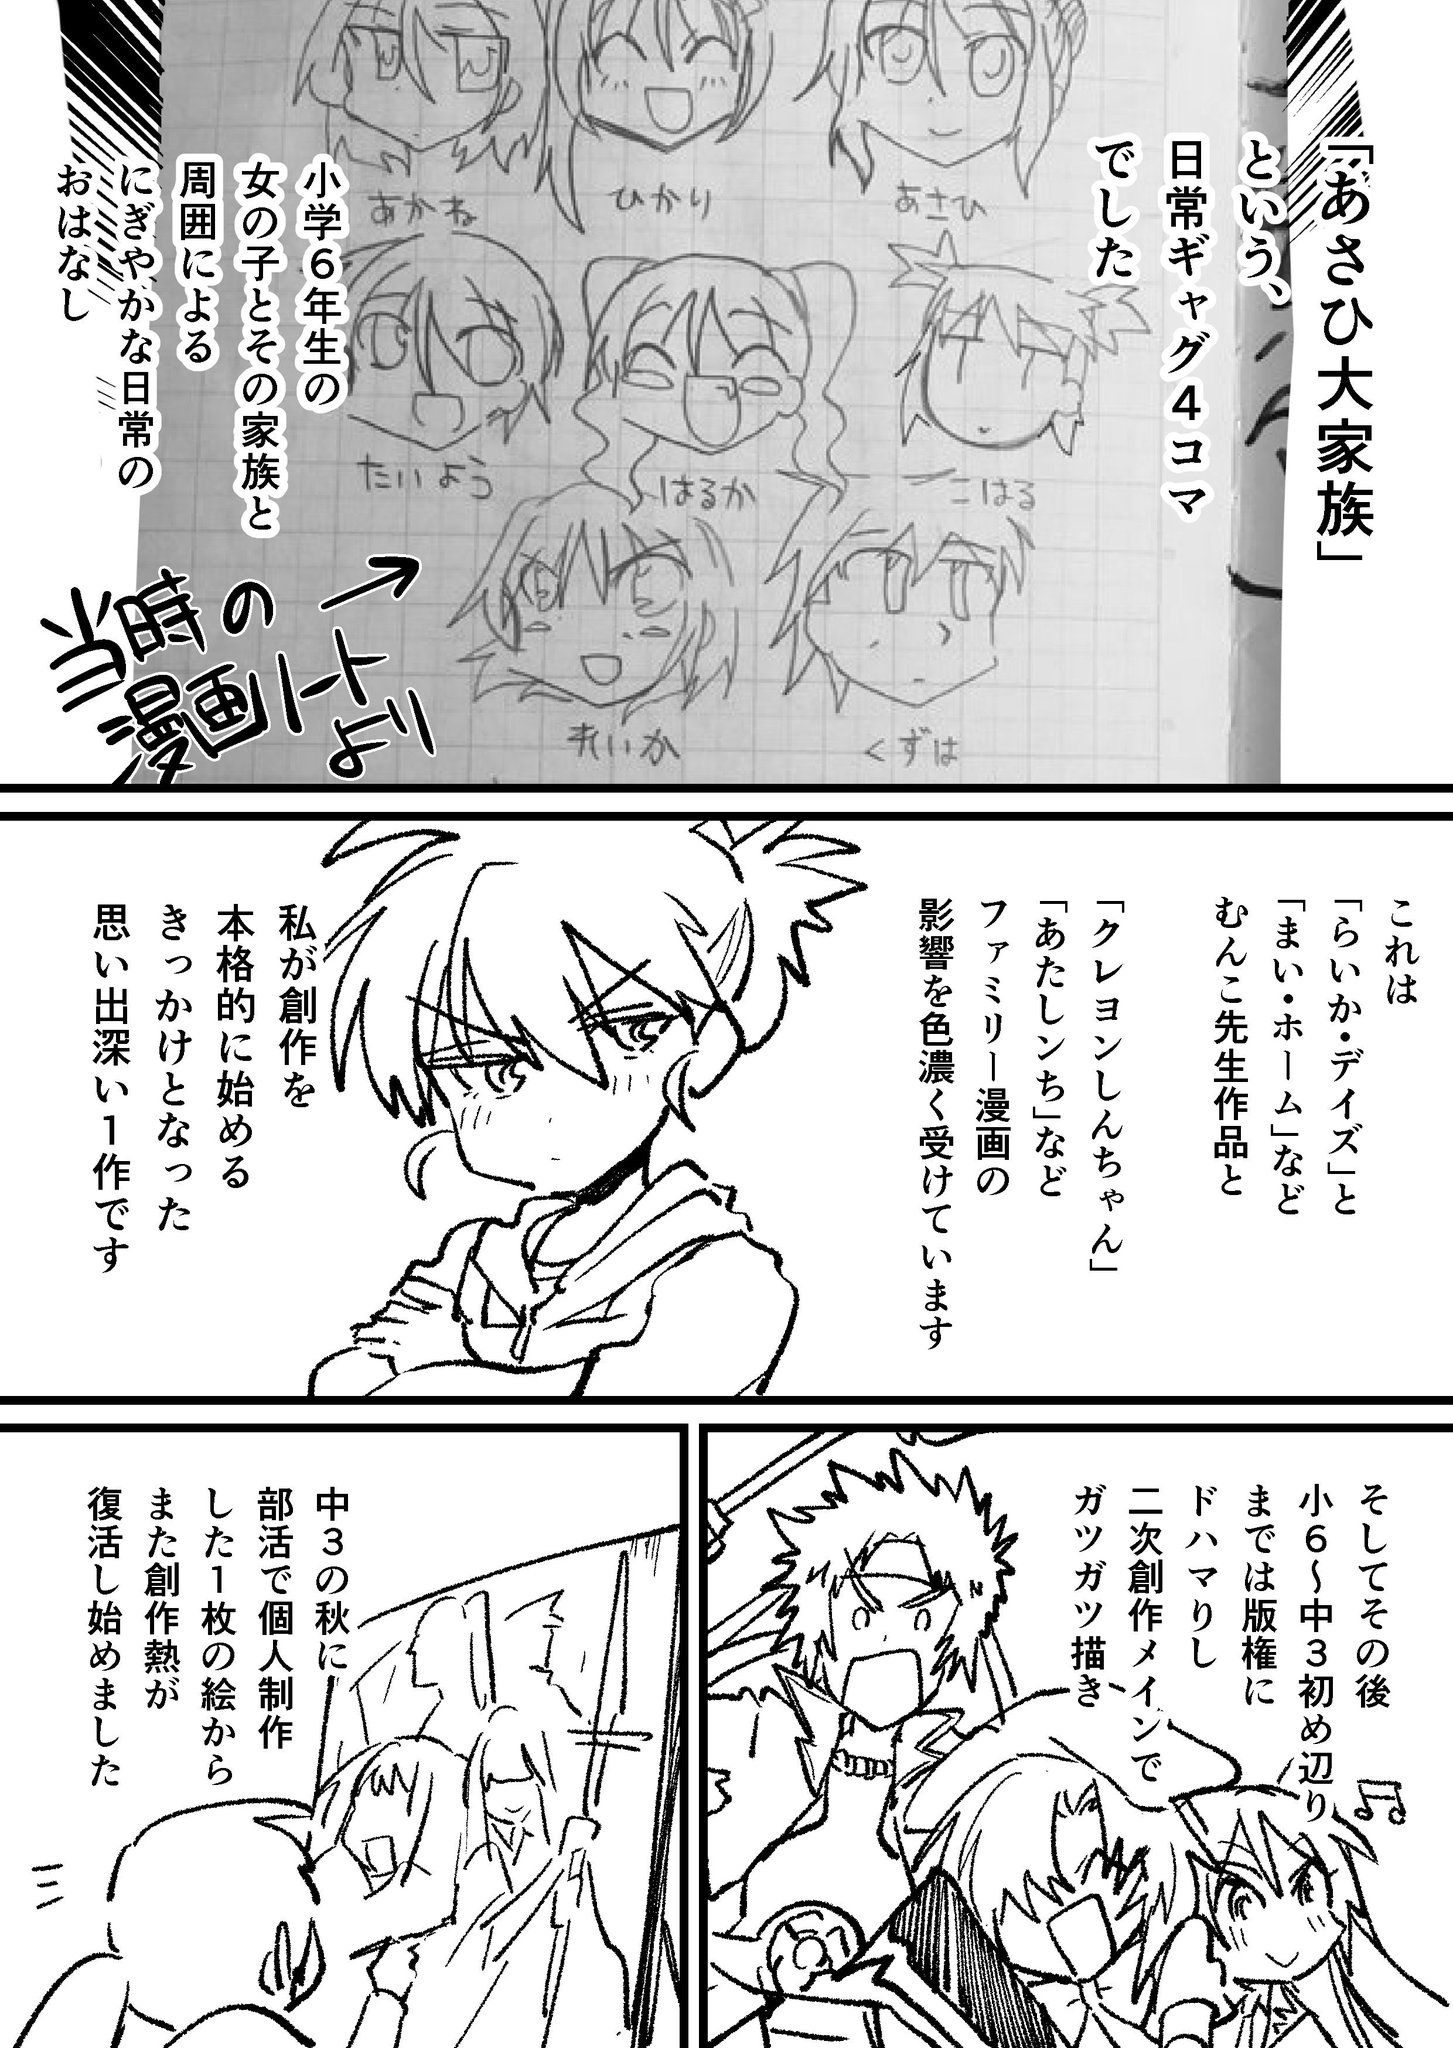 「あさひ大家族」
という、
日常ギャグ4コマ
でした
小学6年生の
女の子とその家族と
周囲による
にぎやかな日常の
おはなし
あさひ
ひかり
あかね
こはる
はるか
たいよう
くずは
れいか
当時の
漫画ノート
より
これは
「らいか・デイズ」と
「まい・ホーム」など
むんこ先生作品と
「クレヨンしんちゃん」
「あたしンち」など
ファミリー漫画の
影響を色濃く受けています
私が創作を
本格的に始める
きっかけとなった
思い出深い1作です
そしてその後
小6～中3初め辺り
までは版権に
ドハマりし
二次創作メインで
ガツガツ描き
中3の秋に
部活で個人制作
した1枚の絵から
また創作熱が
復活し始めました